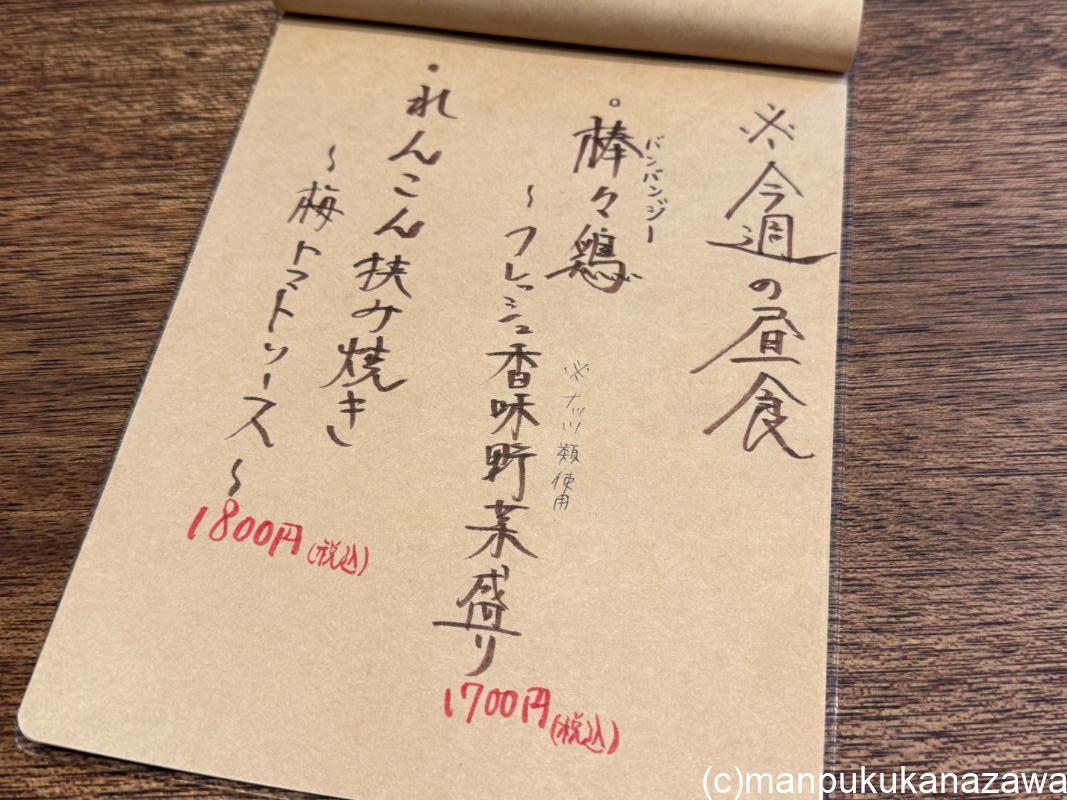 ※今週の昼食
。棒々鶏
バンバンジー
～フレッシュ香味野菜盛り
※ナッツ類使用
1700円(税込)
・れんこん挟み焼き
～梅トマトソース～
1800円(税込)
(c)manpukukanazawa